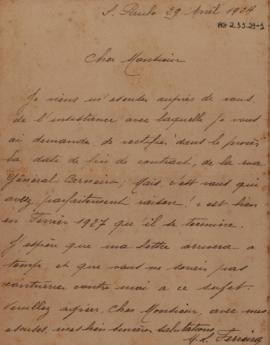 S. Paulo 29 Avril 1928
Cher Monsieur
Je viens m'excuser auprès de vous
de l'insistance avec laquelle je vous
ai demandé de rectifier dans le procès
la date de fin de contract, de la rua
Général Carneiro; Mais, c'est vous qui
avez parfaitement raison! c'est bien
en Février 1927 qu'il se termine.
J'espère que ma lettre arrivera à
temps et que vous ne serais pas
contre moi à ce sujet.
Veuillez agréer, Cher Monsieur, avec mes
excuses, mes bien sincères salutations,
Ferreira